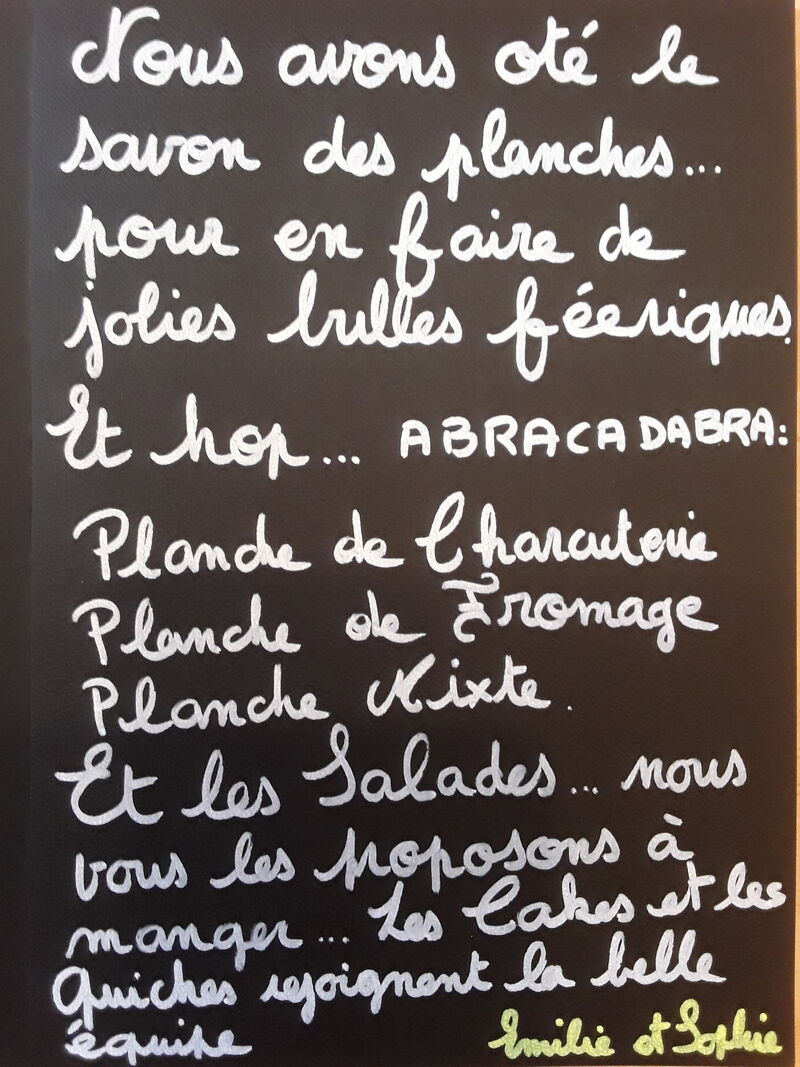 Nous avons oté le
savon des planches...
pour en faire de
jolies bulles féeriques.
Et hop... ABRACADABRA:
Planche de Charcuterie
Planche de Fromage
Planche Mixte.
Et les Salades... nous
vous les proposons à
manger... Les Cakes et les
Quiches rejoignent la belle
équipe
Emilie et Sophie